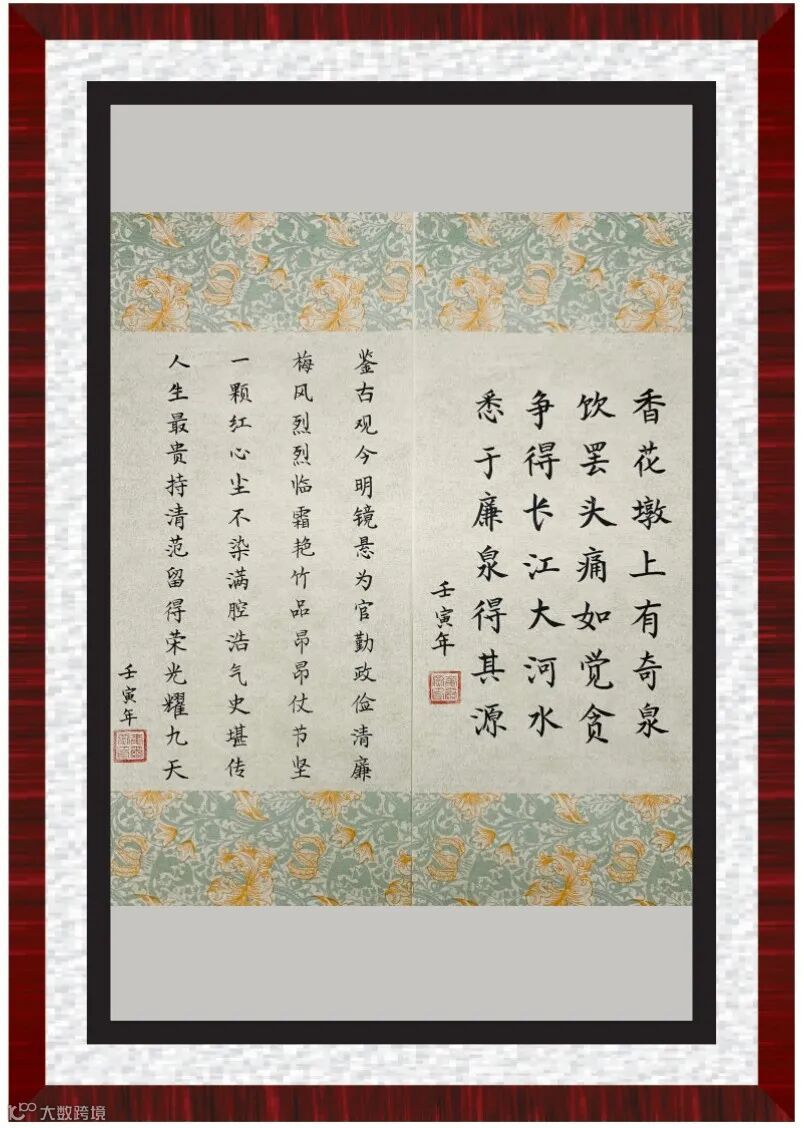 香花墩上有奇泉
饮罢头痛如觉贪
争得长江大河水
悉于廉泉得其源
壬寅年
鉴古观今明镜悬为官勤政俭清廉
梅风烈烈临霜艳竹品昂昂仗节坚
一颗红心尘不染满腔浩气史堪传
人生最贵持清范留得荣光耀九天
壬寅年
大数跨境